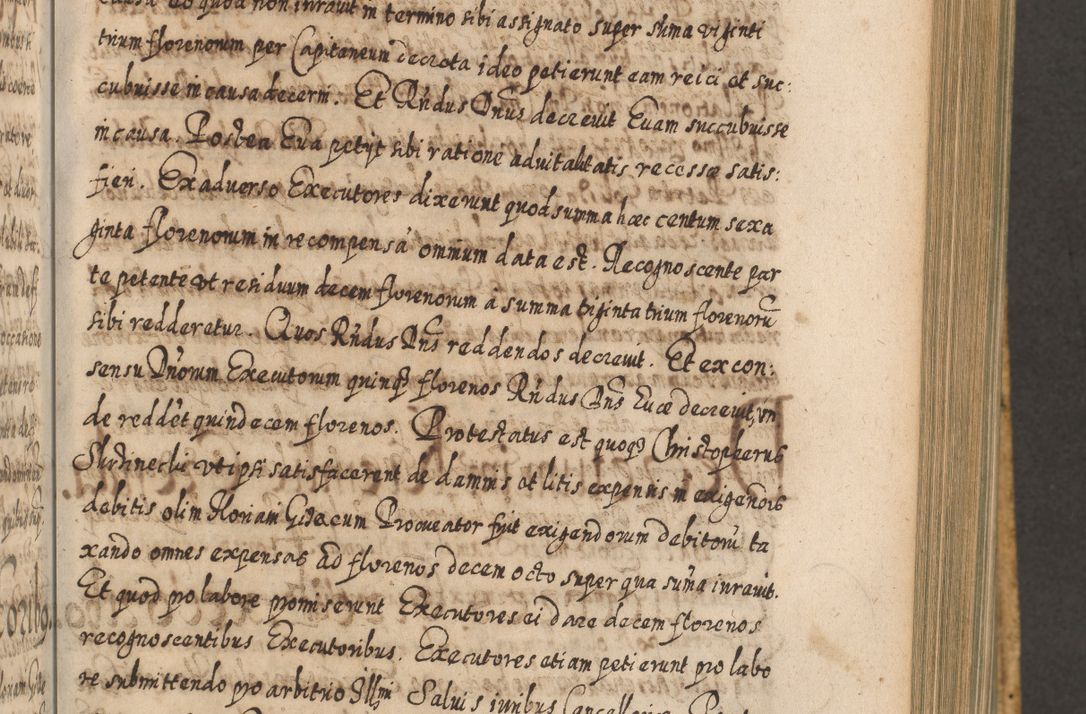 causa eo quod non iuravit in termino sibi assignato super suma viginti
trium florenorum per Capitaneum decreta ideo petierunt eam reici et suc:
cubuisse in causa decerni. Et Rńdus Dńus decrevit Evam succubuisse
in causa. Postea Eva petijt sibi ratione advitalitatis recessæ satis:
fieri. Ex adverso Executores dixerunt quod summa hæc centum sexa
ginta florenorum in recompensa omnium data est. Recognoscente par
te petente ut residuum decem florenorum à summa triginta trium florenorũ
sibi redderetur. Quos Rńdus Dńs reddendos decrevit. Et ex con:
sensu Dńorum Executorum quinqꝫ florenos Rńdus Dńs Evæ decrevit, un
de reddet quindecem florenos. Protestatus est quoqꝫ Christopherus
ut ipsi satisfacerent de damnis et litis expensis in exigendis
debitis olim Procurator fuit exigendorum debitorũ ta
xando omnes expensas ad florenos decem octo super qua suma iuravit.
Et quod pro labore promiserunt Executores ei dare decem florenos
recognoscentibus Executoribus. Executores etiam petierunt pro labo
re submittendo pro arbitrio Illmi Salvis iuribus